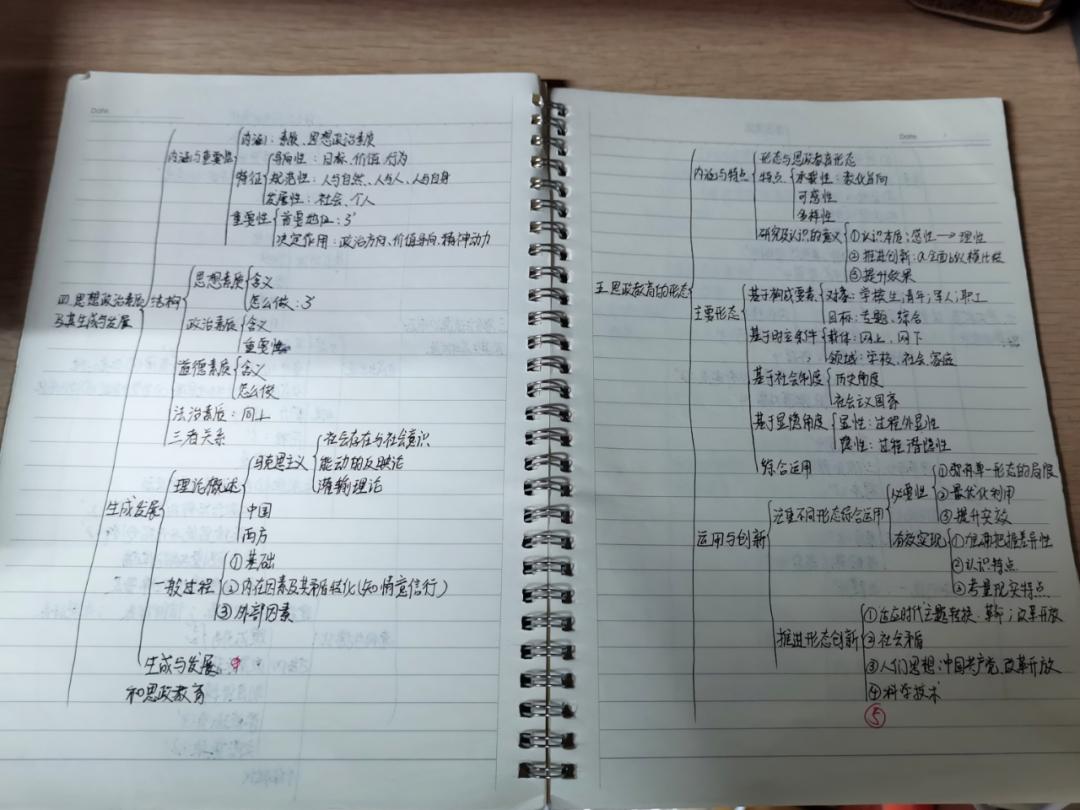 Date
内涵与重要性
内涵：素质、思想政治素质
特征
导向性：目标、价值、行为
规范性：人与自然、人与人、人与自身
发展性：社会、个人
重要性
首要地位：3'
决定作用：政治方向、价值导向、精神动力
四.思想政治素质
及其生成与发展
结构
思想素质
含义
怎么做：3'
政治素质
含义
重要性
道德素质
含义
怎么做
法治素质：同上
三者关系
生成发展
理论概述
马克思主义
社会存在与社会意识
能动的反映论
灌输理论
中国
西方
一般过程
①基础
②内在因素及其矛盾转化(知情意信行)
③外部因素
生成与发展
和思政教育
Date
五.思政教育的形态
内涵与特点
形态与思政教育形态
特点
可感性
多样性
研究及认识的意义
①认识本质：感性→理性
②推进创新
③提升效果
主要形态
基于构成要素
对象：学校生；青年；军人；职工
目标：专题、综合
载体：网上、网下
领域：学校、社会、家庭
基于社会制度
历史角度
社会主义国家
基于显隐角度
显性：过程外显性
隐性：过程潜隐性
综合运用
运用与创新
注重不同形态综合运用
必要性
单一形态的局限
②最优化利用
③提升实效
有效实现
①准确把握差异性
②认识特点
③考量现实特点
推进形态创新
①适应时代主题转换、革新；改革开放
②社会矛盾
③人们思想：中国共产党、改革开放
④科学技术
⑤